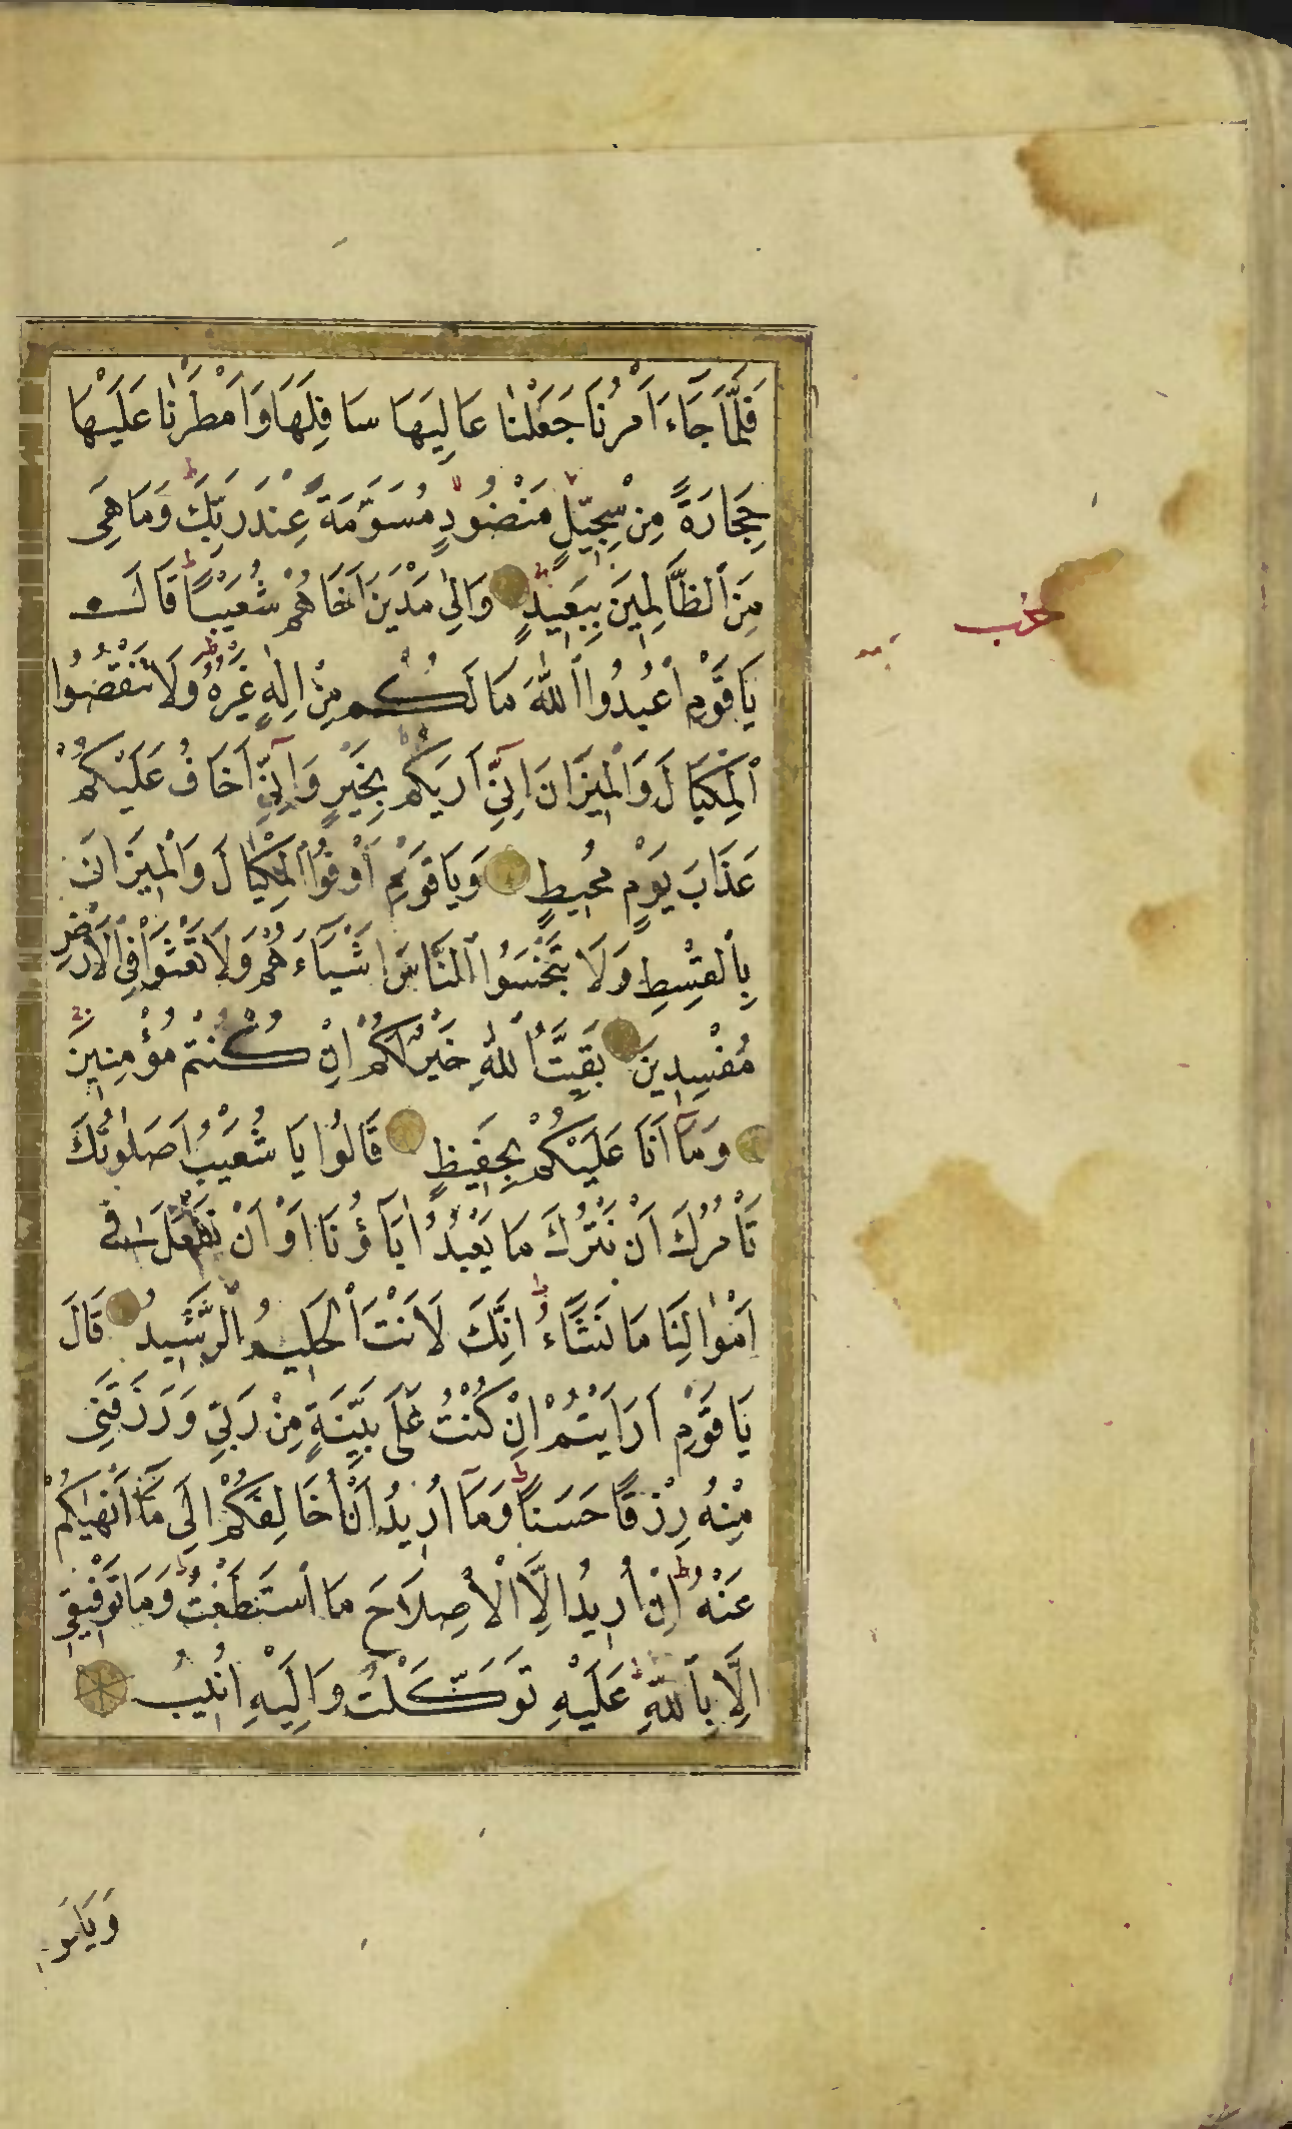 فَلَمَّا جَاءَ اَمْرُنَا جَعَلْنَا عَالِيَهَا سَافِلَهَا وَاَمْطَرْنَا عَلَيْهَا
حِجَارَةً مِنْ سِجِّيلٍ مَنْضُودٍ مُسَوَّمَةً عِنْدَ رَبِّكَ وَمَا هِيَ
مِنَ ٱلظَّالِمِينَ بِبَعِيدٍ وَاِلٰى مَدْيَنَ اَخَاهُمْ شُعَيْبًا قَالَ
يَا قَوْمِ ٱعْبُدُوا ٱللّٰهَ مَا لَكُمْ مِنْ اِلٰهٍ غَيْرُهُ وَلَا تَنْقُصُوا
ٱلْمِكْيَالَ وَالْمِيزَانَ اِنِّي اَرٰيكُمْ بِخَيْرٍ وَاِنِّي اَخَافُ عَلَيْكُمْ
عَذَابَ يَوْمٍ مُحِيطٍ وَيَا قَوْمِ اَوْفُوا ٱلْمِكْيَالَ وَالْمِيزَانَ
بِٱلْقِسْطِ وَلَا تَبْخَسُوا ٱلنَّاسَ اَشْيَاءَهُمْ وَلَا تَعْثَوْا فِي ٱلْاَرْضِ
مُفْسِدِينَ بَقِيَّتُ ٱللّٰهِ خَيْرٌ لَكُمْ اِنْ كُنْتُمْ مُؤْمِنِينَ
وَمَا اَنَا عَلَيْكُمْ بِحَفِيظٍ قَالُوا يَا شُعَيْبُ اَصَلٰوتُكَ
تَأْمُرُكَ اَنْ نَتْرُكَ مَا يَعْبُدُ اٰبَاؤُنَا اَوْ اَنْ نَفْعَلَ فِي
اَمْوَالِنَا مَا نَشَاءُ اِنَّكَ لَاَنْتَ ٱلْحَلِيمُ ٱلرَّشِيدُ قَالَ
يَا قَوْمِ اَرَاَيْتُمْ اِنْ كُنْتُ عَلٰى بَيِّنَةٍ مِنْ رَبِّي وَرَزَقَنِي
مِنْهُ رِزْقًا حَسَنًا وَمَا اُرِيدُ اَنْ اُخَالِفَكُمْ اِلٰى مَا اَنْهٰيكُمْ
عَنْهُ اِنْ اُرِيدُ اِلَّا ٱلْاِصْلَاحَ مَا ٱسْتَطَعْتُ وَمَا تَوْفِيقِي
اِلَّا بِٱللّٰهِ عَلَيْهِ تَوَكَّلْتُ وَاِلَيْهِ اُنِيبُ
حزب
وَيَا قَوْمِ